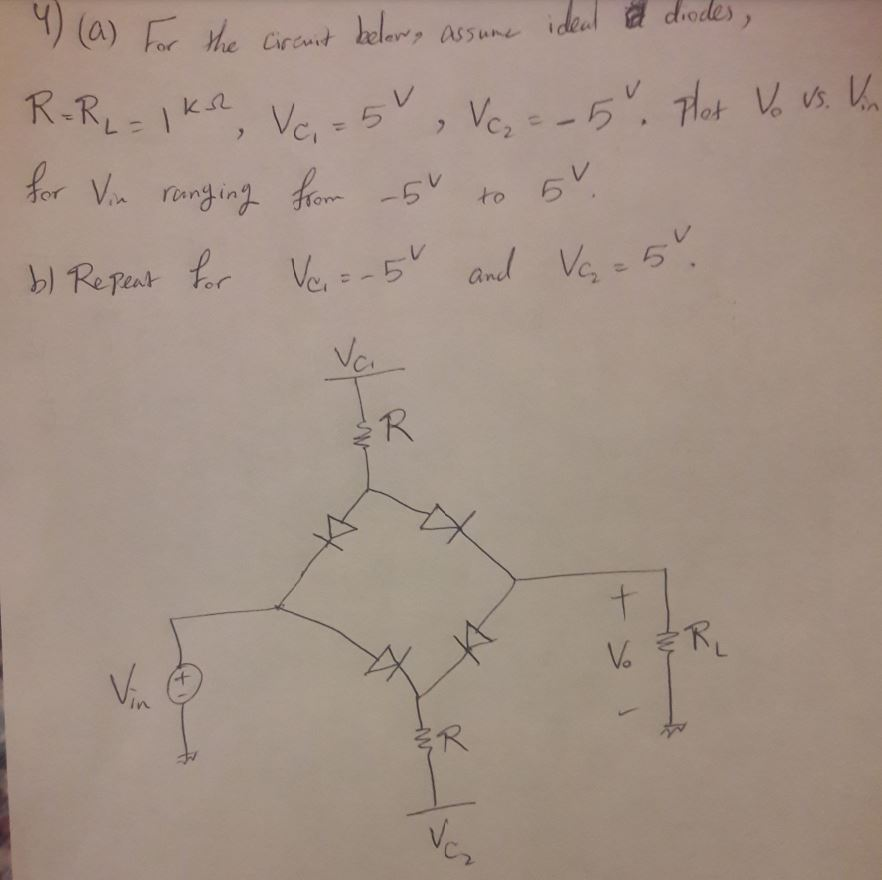 4) (a) For the circuit below, assume ideal diodes,
R=R_L = 1 kΩ, V_C1 = 5 V, V_C2 = -5 V. Plot V_o vs. V_in
for V_in ranging from -5 V to 5 V.
b) Repeat for V_C1 = -5 V and V_C2 = 5 V.
V_C1
R
V_in
+
-
+
V_o
-
R_L
R
V_C2